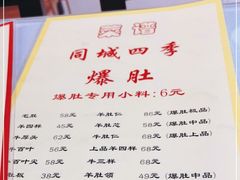 菜谱
同城四季
爆肚
爆肚专用小料:6元
毛肚 58元 羊肚仁 86元 (爆肚极品)
羊四样 58元 羊肚芯 58元 (爆肚中品)
羊厚头 62元 牛肚仁 68元 (爆肚上品)
羊百叶 56元 上品羊四样 68元
牛百叶尖 58元 牛三样 68元
肚板 38元 羊肚领 49元 (爆肚中品)